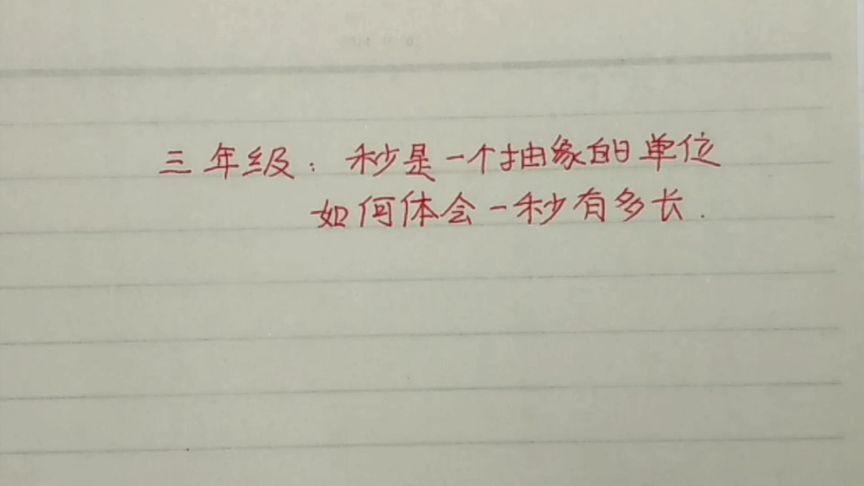 三年级：秒是一个抽象的单位
如何体会一秒有多长.